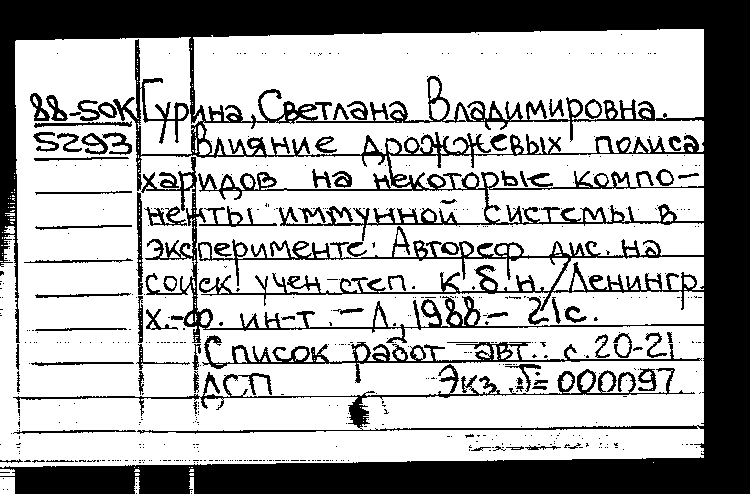 88-50К Гурина, Светлана Владимировна.
5293 Влияние дрожжевых полиса-
харидов на некоторые компо-
ненты иммунной системы в
эксперименте: Автореф. дис. на
соиск. учен. степ. к.б.н. / Ленингр.
х.-ф. ин-т. - Л., 1988. - 21с.
Список работ авт.: с. 20-21
ДСП Экз. №= 000097.